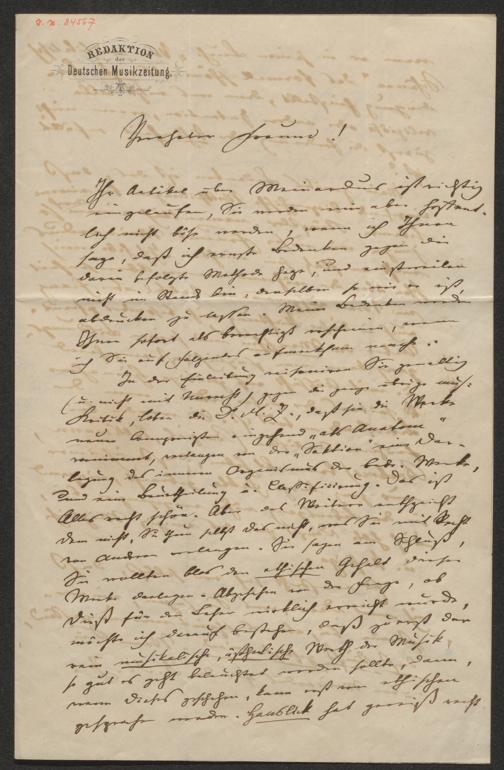 I. N. 84567
REDAKTION
der
Deutschen Musikzeitung.
Verehrter Freund!
Ihr Artikel über Meinardus ist richtig
eingelaufen, Sie werden mir aber hoffent-
lich nicht böse werden, wenn ich Ihnen
sage, daß ich ernste Bedenken gegen die
darin befolgte Methode hege, und einstweilen
nicht im Stand bin, denselben so wie er ist,
abdrucken zu lassen. Meine Bedenken werden
Ihnen sofort als berechtigt erscheinen, wenn
ich Sie auf folgendes aufmerksam mache:
In der Einleitung raisonniren Sie gewaltig
(u. nicht mit Unrecht) gegen die ganze übrige mus.
Kritik, loben die D. M. Z., daß sie die Werke
neuer Componisten eingehend "als Anatom"
vornimmt, verlangen von der "Sektion" eine Dar-
legung des innern Organismus der betr. Werke,
und eine Beurtheilung u. Classifizierung. Das ist
Alles recht schön. Aber das Weitere entspricht
dem nicht, Sie thun selbst das nicht, was Sie mit Recht
von Andern verlangen. Sie sagen am Schluß,
Sie wollten blos den ethischen Gehalt dieser
Werke darlegen. Abgesehen von der Frage, ob
Dieß für den Leser wirklich erreicht wurde,
möchte ich darauf bestehen, daß zuerst der
rein musikalische, ästhetische Werth der Musik,
so gut es geht beleuchtet werden sollte, dann,
wenn dieses geschehen, kann erst vom ethischen
gesprochen werden. Hanslick hat gewiß recht